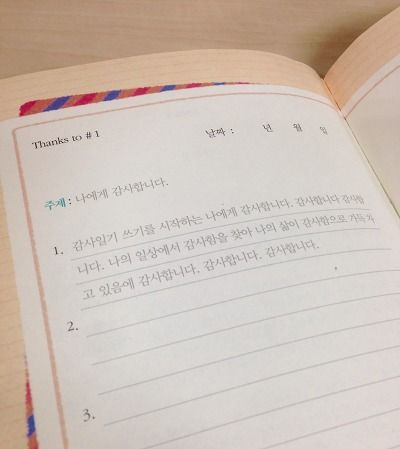 Thanks to #1
날짜 : 년 월 일
주제 : 나에게 감사합니다.
1. 감사일기 쓰기를 시작하는 나에게 감사합니다. 감사합니다 감사합
니다. 나의 일상에서 감사함을 찾아 나의 삶이 감사함으로 가득 차
고 있음에 감사합니다. 감사합니다. 감사합니다.
2.
3.